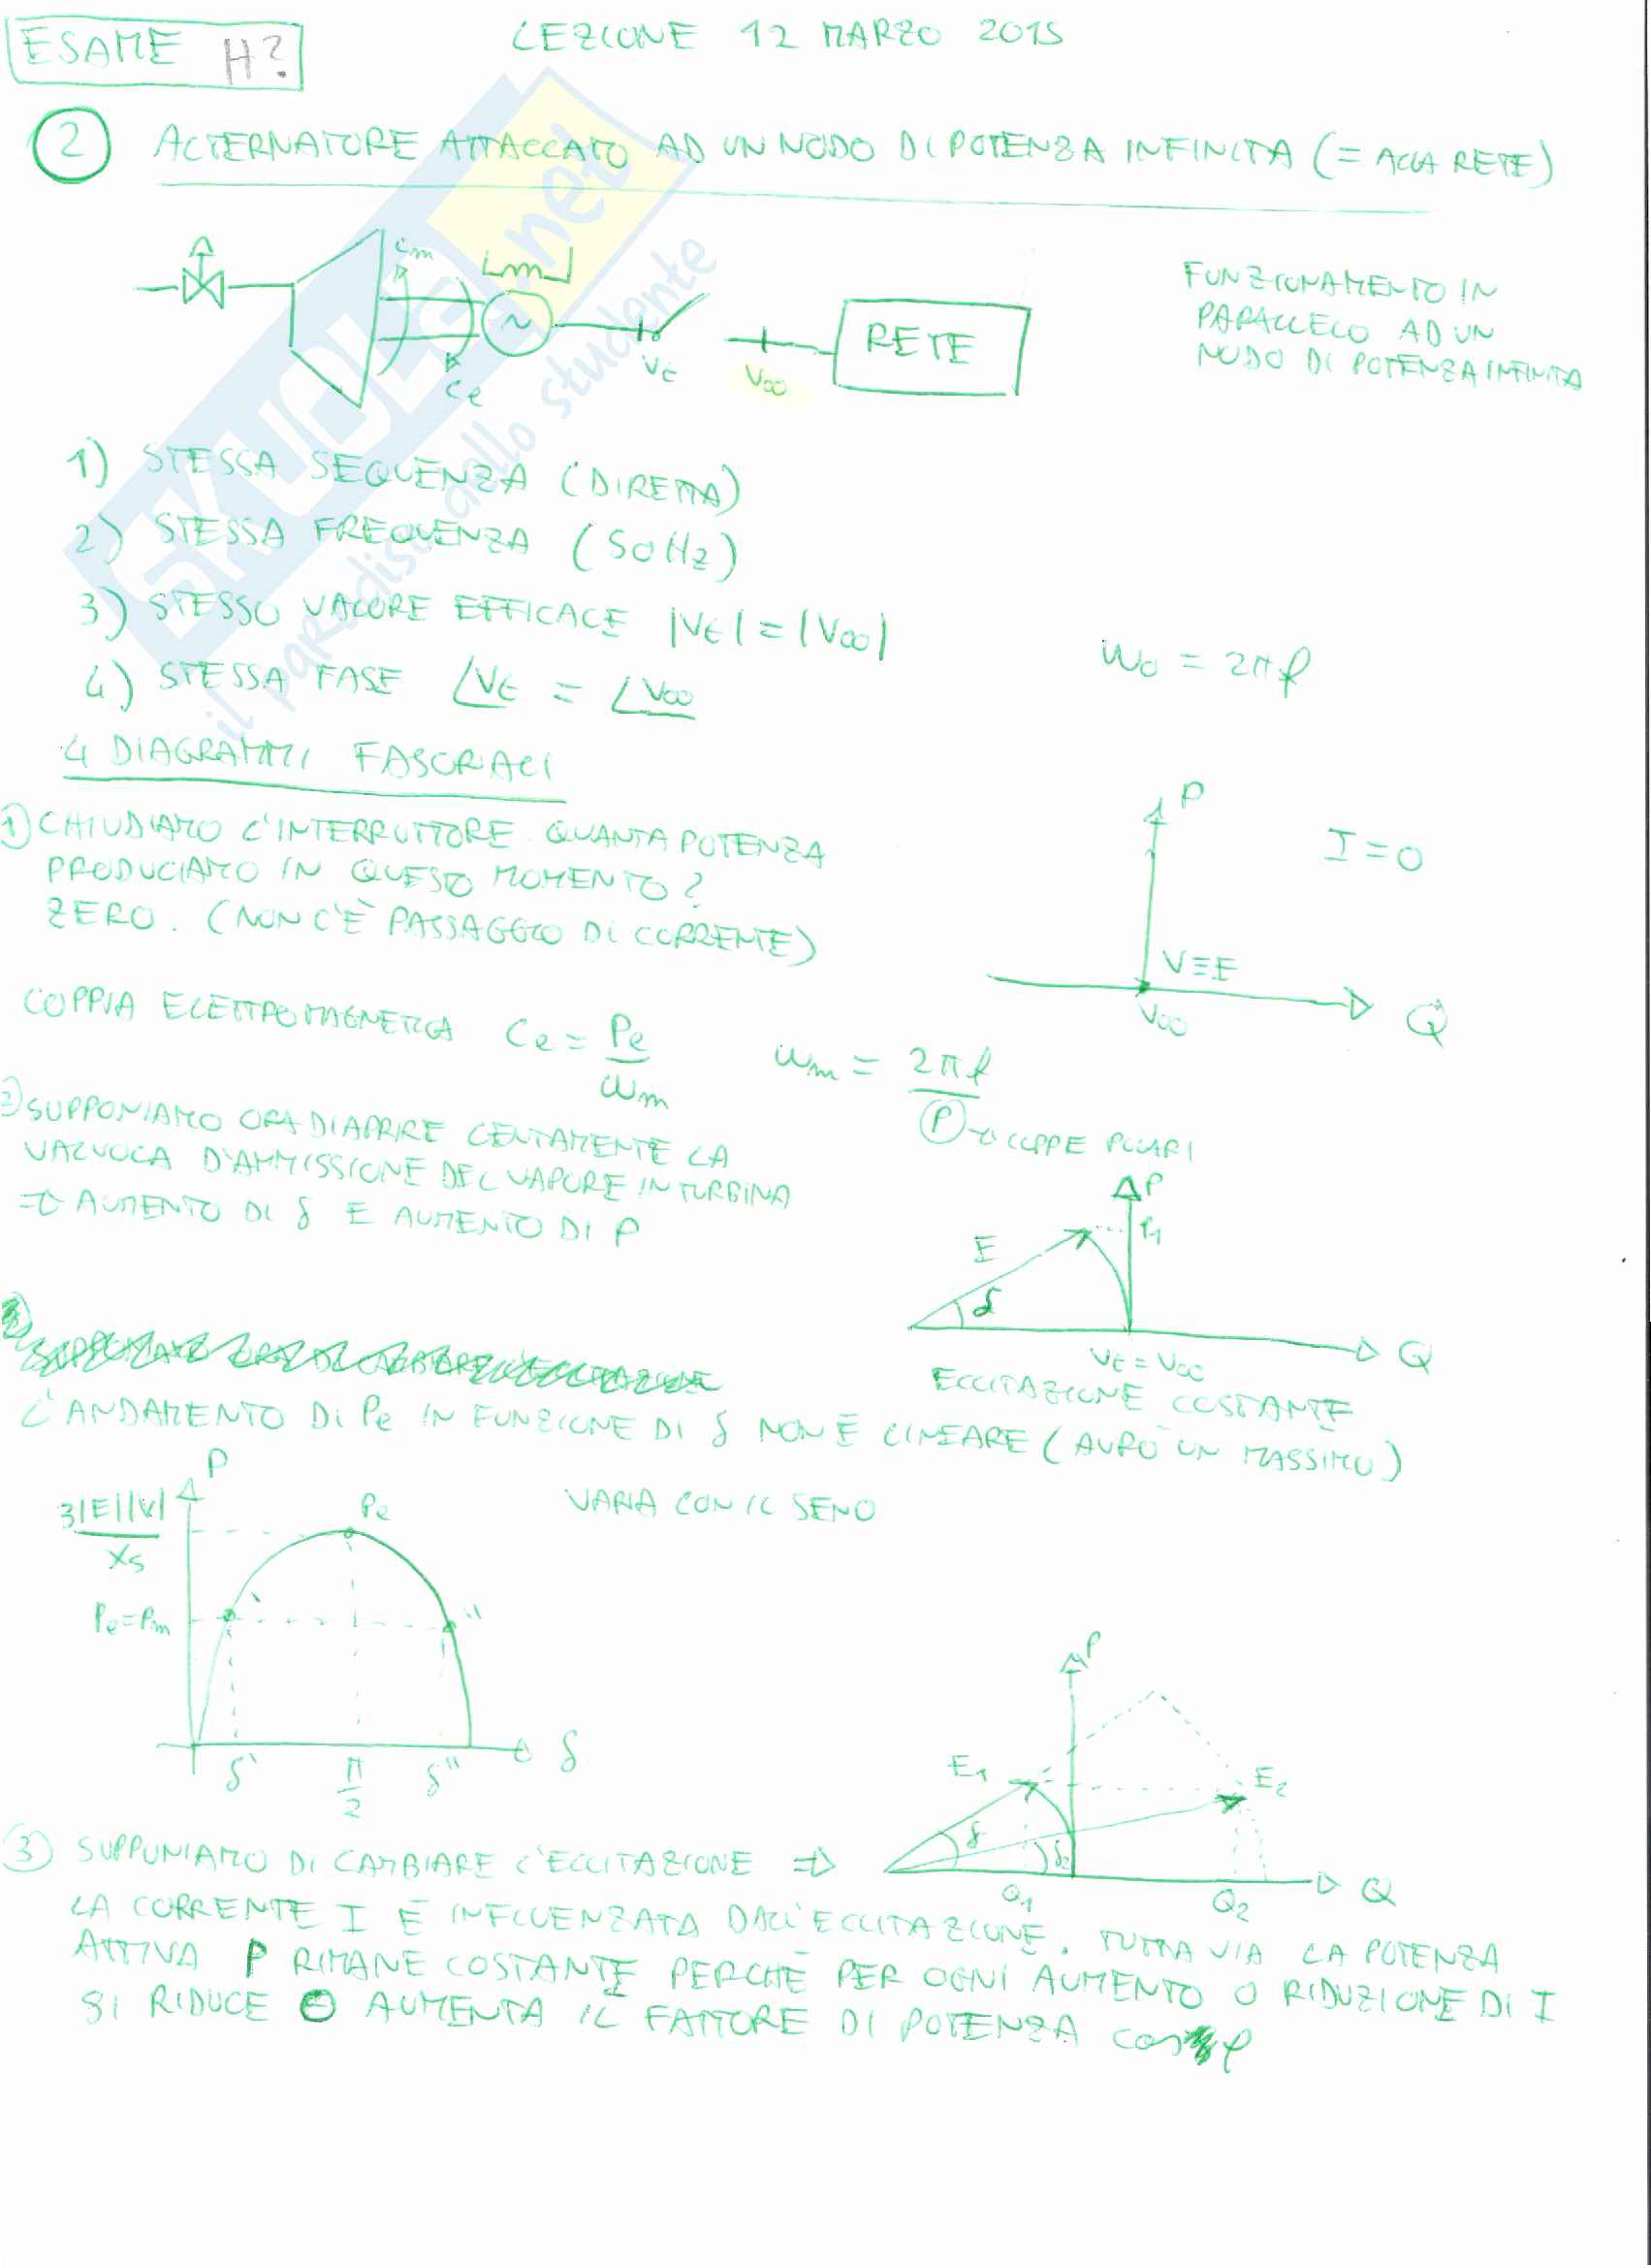 ESAME H?
LEZIONE 12 MARZO 2015
2 ALTERNATORE ATTACCATO AD UN NODO DI POTENZA INFINITA (= ALLA RETE)
Cm
Ce
Vt
V∞
RETE
FUNZIONAMENTO IN
PARALLELO AD UN
NODO DI POTENZA INFINITA
1) STESSA SEQUENZA (DIRETTA)
2) STESSA FREQUENZA (50Hz)
3) STESSO VALORE EFFICACE |Vt| = |V∞|
ω0 = 2πf
4) STESSA FASE ∠Vt = ∠V∞
4 DIAGRAMMI FASORIALI
1) CHIUDIAMO L'INTERRUTTORE. QUANTA POTENZA
PRODUCIAMO IN QUESTO MOMENTO?
ZERO. (NON C'È PASSAGGIO DI CORRENTE)
P
I=0
V≡E
V∞
Q
COPPIA ELETTROMAGNETICA Ce = Pe / ωm
ωm = 2πf / P → COPPIE POLARI
2) SUPPONIAMO ORA DI APRIRE LENTAMENTE LA
VALVOLA D'AMMISSIONE DEL VAPORE IN TURBINA
⇒ AUMENTO DI δ E AUMENTO DI P
P
P1
E
δ
Vt = V∞
Q
ECCITAZIONE COSTANTE
L'ANDAMENTO DI Pe IN FUNZIONE DI δ NON È LINEARE (AVRÒ UN MASSIMO)
VARIA CON IL SENO
P
3|E||V| / Xs
Pe
Pe=Pm
'
''
δ' π/2 δ'' δ
P
E1
E2
δ
δ2
Q1
Q2
Q
3) SUPPONIAMO DI CAMBIARE L'ECCITAZIONE ⇒
LA CORRENTE I È INFLUENZATA DALL'ECCITAZIONE. TUTTAVIA LA POTENZA
ATTIVA P RIMANE COSTANTE PERCHÈ PER OGNI AUMENTO O RIDUZIONE DI I
SI RIDUCE O AUMENTA IL FATTORE DI POTENZA cosφ
SKUOLA.net
il paradiso dello studente